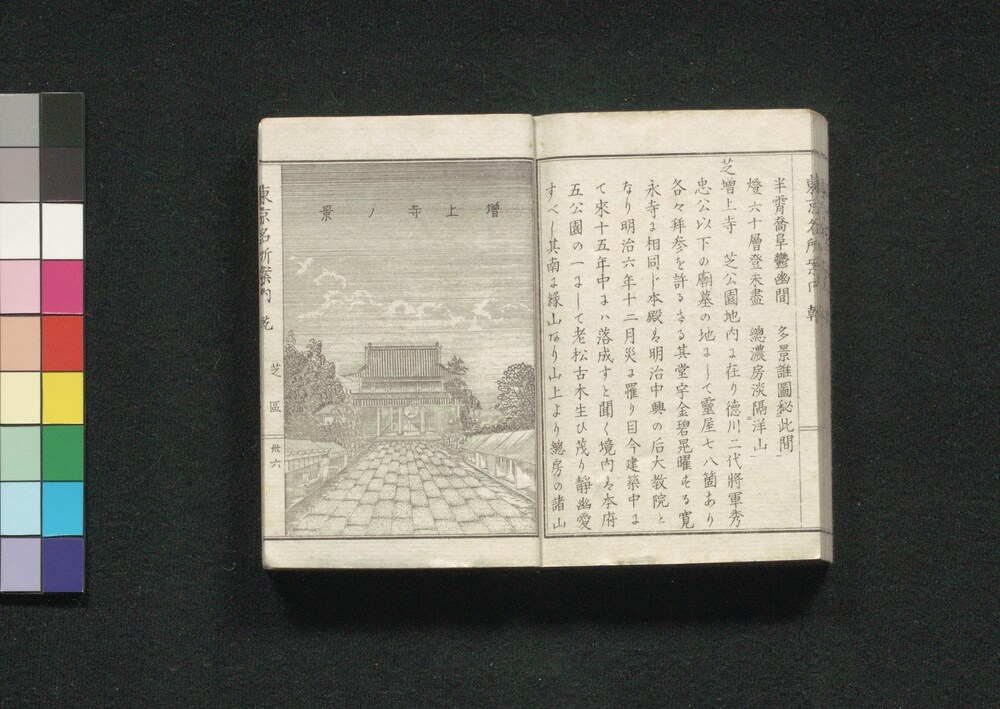 半霄喬阜鬱幽間　多景誰圖秘此間
燈六十層登未盡　總濃房淡隔洋山
芝増上寺　芝公園地内ま在り德川二代將軍秀
忠公以下の廟墓の地まして靈屋七八箇あり
各々拜參を許るさる其堂宇金碧晃曜せる寛
永寺ま相同じ本殿は明治中興の后大教院と
なり明治六年十二月災ま罹り目今建築中ま
て來十五年中まハ落成すと聞く境内は本府
五公園の一まして老松古木生ひ茂り靜幽愛
すべし其南ま縁山あり山上より總房の諸山
增上寺ノ景
東京名所案内
芝區
卅六